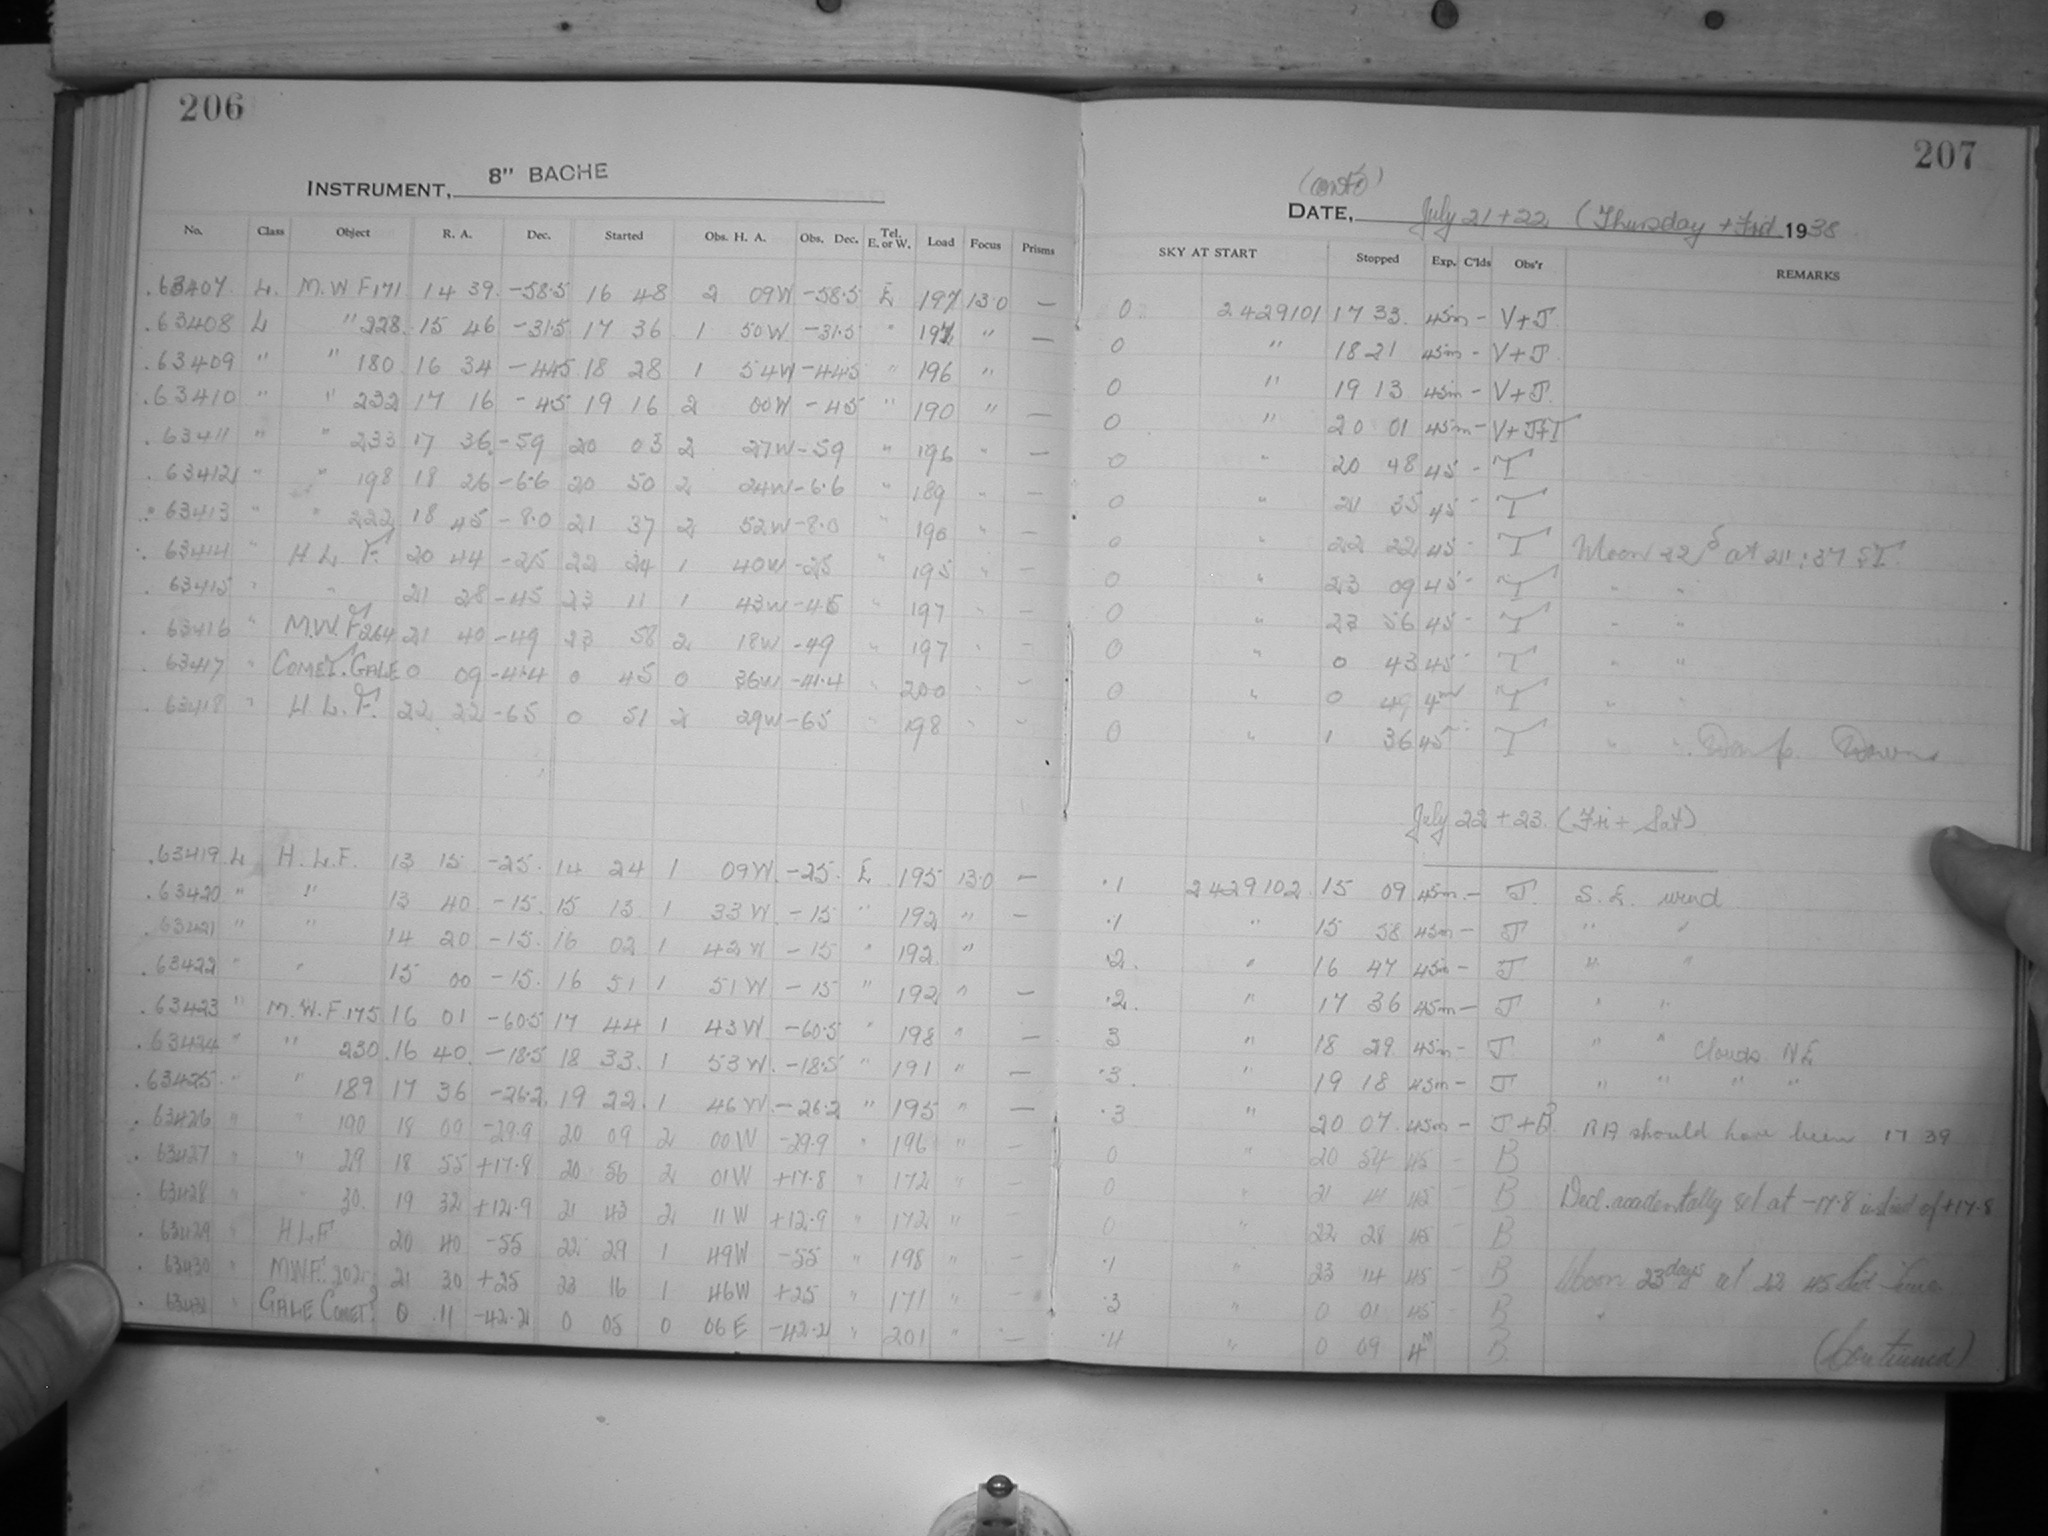 206
INSTRUMENT, 8" BACHE
No. Class Object R. A. Dec. Started Obs. H. A. Obs. Dec. Tel. E. or W. Load Focus Prisms
.63407 L. M.W F 171 14 39 -58.5 16 48 2 09W -58.5 E 197 13.0 —
.63408 L " 228 15 46 -31.5 17 36 1 50W -31.5 " 191 " —
.63409 " " 180 16 34 -44.5 18 28 1 54W -44.5 " 196 "
.63410 " " 232 17 16 -45 19 16 2 00W -45 " 190 " —
.63411 " " 233 17 36 -59 20 03 2 27W -59 " 196 " —
.63412 " " 198 18 26 -6.6 20 50 2 24W -6.6 " 189 " —
.63413 " " 222 18 45 -8.0 21 37 2 52W -8.0 " 190 " —
.63414 " H L F. 20 44 -25 22 24 1 40W -25 " 195 " —
.63415 " " 21 28 -45 23 11 1 43W -45 " 197 " —
.63416 " M.W.F 264 21 40 -49 23 58 2 18W -49 " 197 " —
.63417 " COMET. GALE 0 09 -41.4 0 45 0 36W -41.4 " 200 " —
.63418 " H. L. F. 22 22 -65 0 51 2 29W -65 " 198 " "
.63419 L H. L. F. 13 15 -25. 14 24 1 09W. -25. E 195 13.0 —
.63420 " " 13 40 -15. 15 13 1 33 W. -15 " 192 " —
.63421 " " 14 20 -15. 16 02 1 42W -15 " 192 "
.63422 " " 15 00 -15. 16 51 1 51W -15 " 192 " —
.63423 " M. W. F. 175 16 01 -60.5 17 44 1 43W -60.5 " 198 " —
.63424 " " 230 16 40 -18.5 18 33. 1 53W. -18.5 " 191 " —
.63425 " " 189 17 36 -26.2 19 22. 1 46W. -26.2 " 195 " —
.63426 " " 190 18 09 -29.9 20 09 2 00W -29.9 " 196 " —
.63427 " " 29 18 55 +17.8 20 56 2 01W +17.8 " 172 " —
.63428 " " 30. 19 32 +12.9 21 43 2 11W +12.9 " 172 " —
.63429 " H L F 20 40 -55 22 29 1 49W -55 " 198 " —
.63430 " M.W.F. 202 21 30 +25 23 16 1 46W +25 " 171 " —
.63431 " GALE COMET? 0 11 -42.2 0 05 0 06 E -42.2 " 201 " —
207
(cont'd)
DATE, July 21 + 22 (Thursday + Frid 1938
SKY AT START Stopped Exp. C'lds Obs'r REMARKS
0 2429101 17 33. 45m - V+J
0 " 18 21 45m - V+J
0 " 19 13 45m - V+J
0 " 20 01 45m - V+J+T
0 " 20 48 45 - T
0 " 21 35 45 - T
0 " 22 22 45 - T Moon 22d at 21:37 S.T.
0 " 23 09 45 - T " "
0 " 23 56 45 - T " "
0 " 0 43 45 - T " "
0 " 0 49 4m T " "
0 " 1 36 45 T " "
July 22 + 23. (Fri + Sat)
.1 2429102 15 09 45m. - J. S. E. wind
.1 " 15 58 45m - J " "
.2. " 16 47 45m - J " "
.2. " 17 36 45m - J " "
3 " 18 29. 45m - J " " Clouds N E
.3. " 19 18 45m - J " " " "
.3 " 20 07. 45m - J + B. RA should have been 17 39
0 " 20 54 45 - B
0 " 21 41 45 - B Decl. accidentally set at -17.8 instead of +17.8
0 " 22 28 45 - B
.1 " 23 14 45 - B Moon 23 days at 22 45 Sid time
.3 " 0 01 45 - B "
.4 " 0 09 4m B. (Continued)